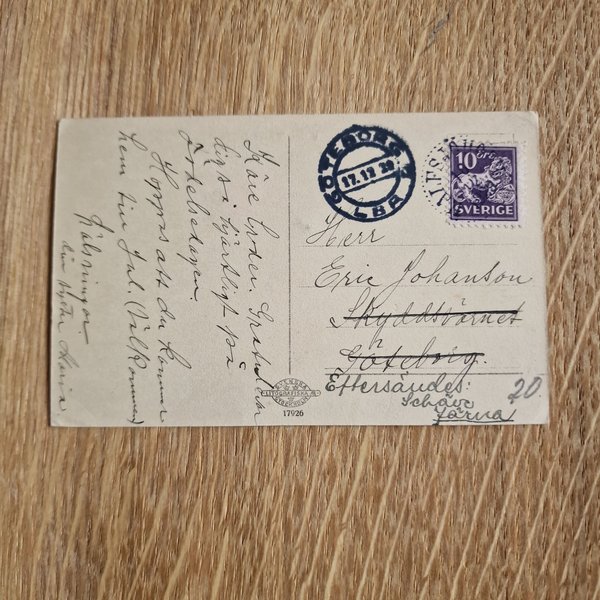 Käre broder. Gratulerar
dig så hjärtligt på
födelsedagen.
Hoppas att du kommer
hem till Jul. (Välkommen)
Hälsningar
din syster Maria
GÖTEBORG 1
17.12.20
LBR
10 ÖRE
SVERIGE
Herr
Eric Johanson
Skyddsvärnet
Göteborg.
Eftersändes:
Järna
20
LITOGRAFISKA
17926